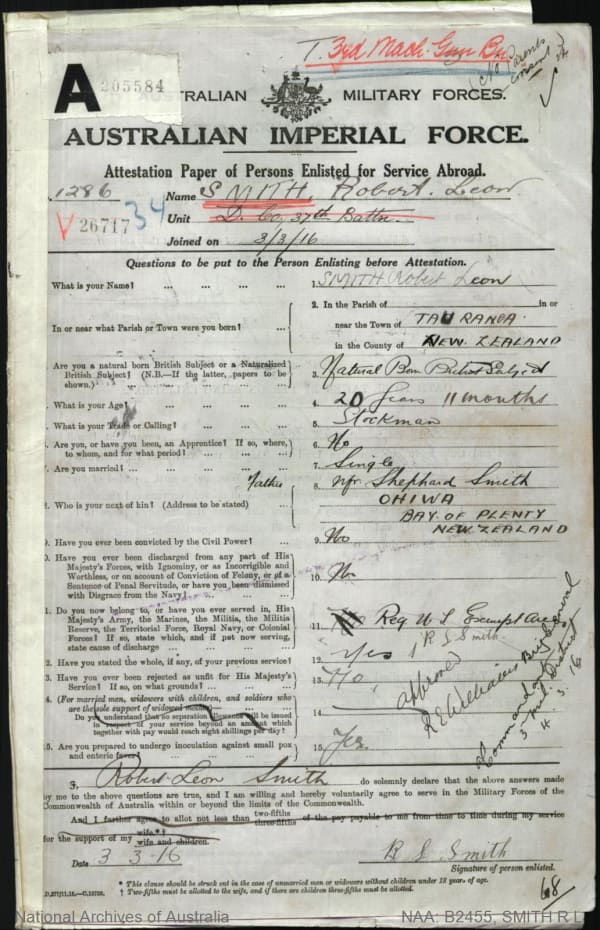 T. 3rd Mach. Gun Bn.
(No Parents consent)
A 205584
AUSTRALIAN MILITARY FORCES.
AUSTRALIAN IMPERIAL FORCE.
Attestation Paper of Persons Enlisted for Service Abroad.
1286 Name SMITH, Robert. Leon.
V 26717 34 Unit D. Co, 37th Battn.
Joined on 3/3/16
Questions to be put to the Person Enlisting before Attestation.
What is your Name? ... ... ... ... 1. SMITH Robert Leon
In or near what Parish or Town were you born? ... 2. In the Parish of in or
near the Town of TAURANGA
in the County of NEW ZEALAND
Are you a natural born British Subject or a Naturalized
British Subject? (N.B.—If the latter, papers to be
shown.) ... ... ... 3. Natural Born British Subject
What is your Age? ... ... ... 4. 20 Years 11 months
What is your Trade or Calling? ... ... 5. Stockman
Are you, or have you been, an Apprentice? If so, where,
to whom, and for what period? ... ... ... 6. No
Are you married? ... ... ... 7. Single
Father 8. Mr. Shephard Smith
8. Who is your next of kin? (Address to be stated) ... OHIWA
BAY OF PLENTY
NEW ZEALAND
9. Have you ever been convicted by the Civil Power? ... 9. No
0. Have you ever been discharged from any part of His
Majesty's Forces, with Ignominy, or as Incorrigible and
Worthless, or on account of Conviction of Felony, or of a
Sentence of Penal Servitude, or have you been dismissed
with Disgrace from the Navy? ... ... 10. No
1. Do you now belong to, or have you ever served in, His
Majesty's Army, the Marines, the Militia, the Militia
Reserve, the Territorial Force, Royal Navy, or Colonial
Forces? If so, state which, and if not now serving,
state cause of discharge ... ... 11. Reg U S Exempt Area
R L Smith
2. Have you stated the whole, if any, of your previous service? 12. Yes
3. Have you ever been rejected as unfit for His Majesty's
Service? If so, on what grounds? ... ... 13. No
4. (For married men, widowers with children, and soldiers who
are the sole support of widowed mother)—
Do you understand that no separation allowance will be issued
in respect of your service beyond an amount which
together with pay would reach eight shillings per day? 14.
5. Are you prepared to undergo inoculation against small pox
and enteric fever? ... ... ... 15. Yes.
Approved
R E Williams Brig General
Commandant
3 Mil. District
4. 3. 16
I, Robert Leon Smith do solemnly declare that the above answers made
by me to the above questions are true, and I am willing and hereby voluntarily agree to serve in the Military Forces of the
Commonwealth of Australia within or beyond the limits of the Commonwealth.
And I further agree to allot not less than two-fifths three-fifths of the pay payable to me from time to time during my service
for the support of my wife.*† wife and children.
Date 3 3-16 R L Smith
Signature of person enlisted.
* This clause should be struck out in the case of unmarried men or widowers without children under 18 years of age.
† Two-fifths must be allotted to the wife, and if there are children three-fifths must be allotted.
68
National Archives of Australia NAA: B2455, SMITH R L